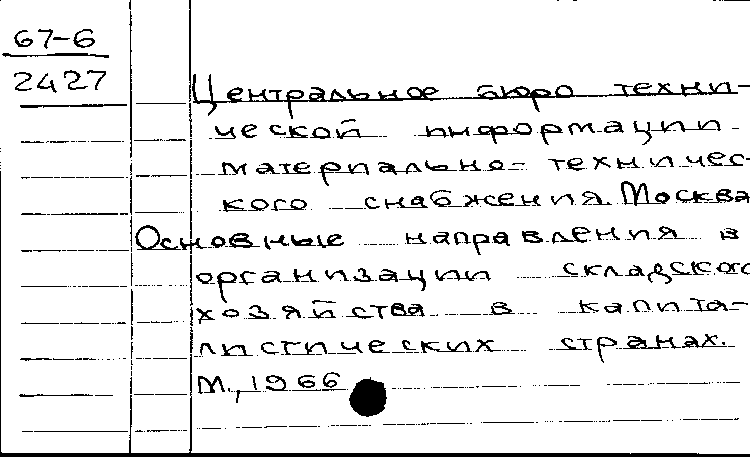 67-6
2427
Центральное бюро техни-
ческой информации
материально-техничес-
кого снабжения. Москва
Основные направления в
организации складского
хозяйства в капита-
листических странах.
М., 1966